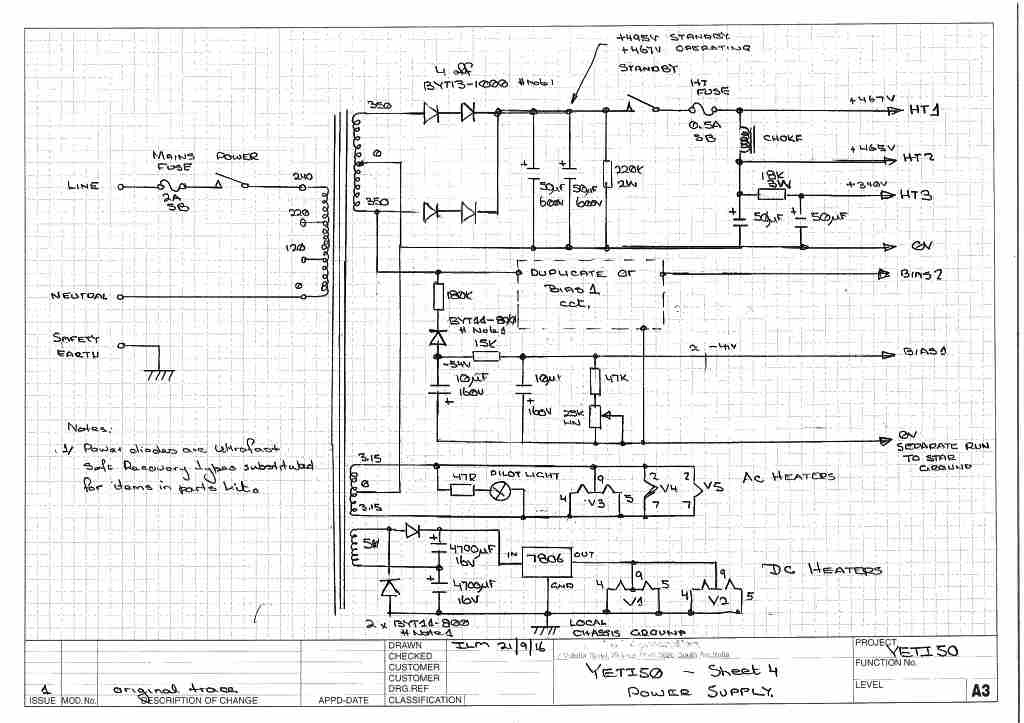 +495V STANDBY
+467V OPERATING
STANDBY
4 off
BYT13-1000 #Note1
HT
FUSE
0.5A
SB
+467V
HT1
CHOKE
+465V
HT2
18K
3W
+340V
HT3
50µF
50µF
0V
350
0
350
50µF
600V
50µF
600V
220K
2W
MAINS
FUSE
POWER
LINE
2A
SB
240
220
120
0
NEUTRAL
SAFETY
EARTH
DUPLICATE OF
BIAS 1
cct.
BIAS2
180K
# Note1
15K
-54V
10µF
160V
10µF
160V
47K
25K
LIN
≈ -41V
BIAS1
0V
SEPARATE RUN
TO STAR
GROUND
Notes:
1/ Power diodes are Ultrafast
Soft Recovery types substituted
for items in parts list.
3.15
0
3.15
47R
PILOT LIGHT
4
9
5
V3
2
7
V4
2
7
V5
AC HEATERS
4700µF
16V
4700µF
16V
IN
7806
OUT
GND
4
9
5
V1
4
9
5
V2
DC HEATERS
2 x BYT11-800
# Note1
LOCAL
CHASSIS GROUND
DRAWN ILM 21/9/16
CHECKED
CUSTOMER
CUSTOMER
DRG.REF
CLASSIFICATION
YETI50 - Sheet 4
POWER SUPPLY.
PROJECT YETI50
FUNCTION No.
LEVEL
A3
1 original trace
ISSUE MOD. No. DESCRIPTION OF CHANGE APPD-DATE